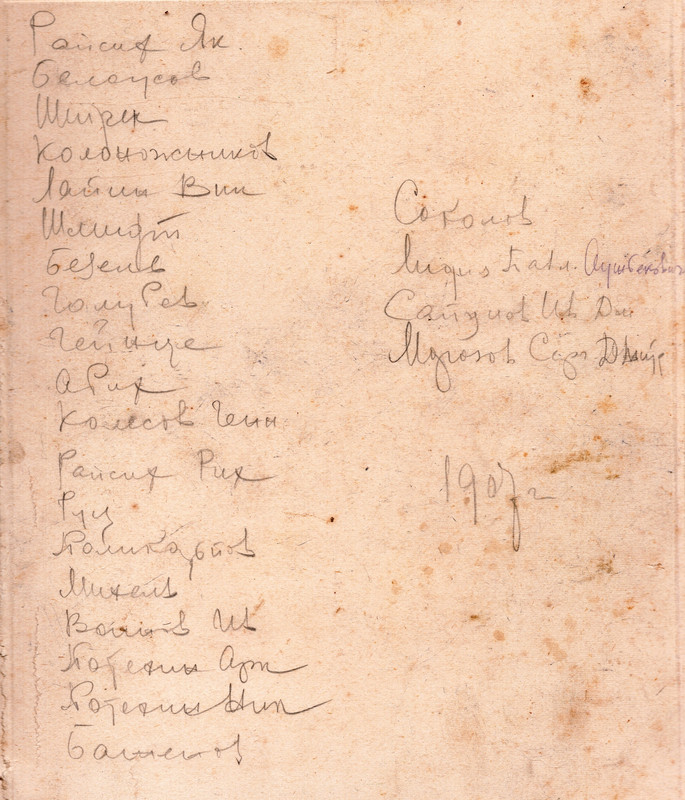 Райсих Як.
Белоусов
Ширек
Колоножников
Лапин Вик
Шмидт
Безель
Голубев
Гейнце
Абих
Колесов Генн
Райсих Рих
Руц
Поликарпов
Михель
Воинов Ив
Потехин Арк
Потехин Ник
Башенов
Соколов
Лидия Павл.
Сайдуков Ив Дм
Морозов Серг Дмитр
1907 г